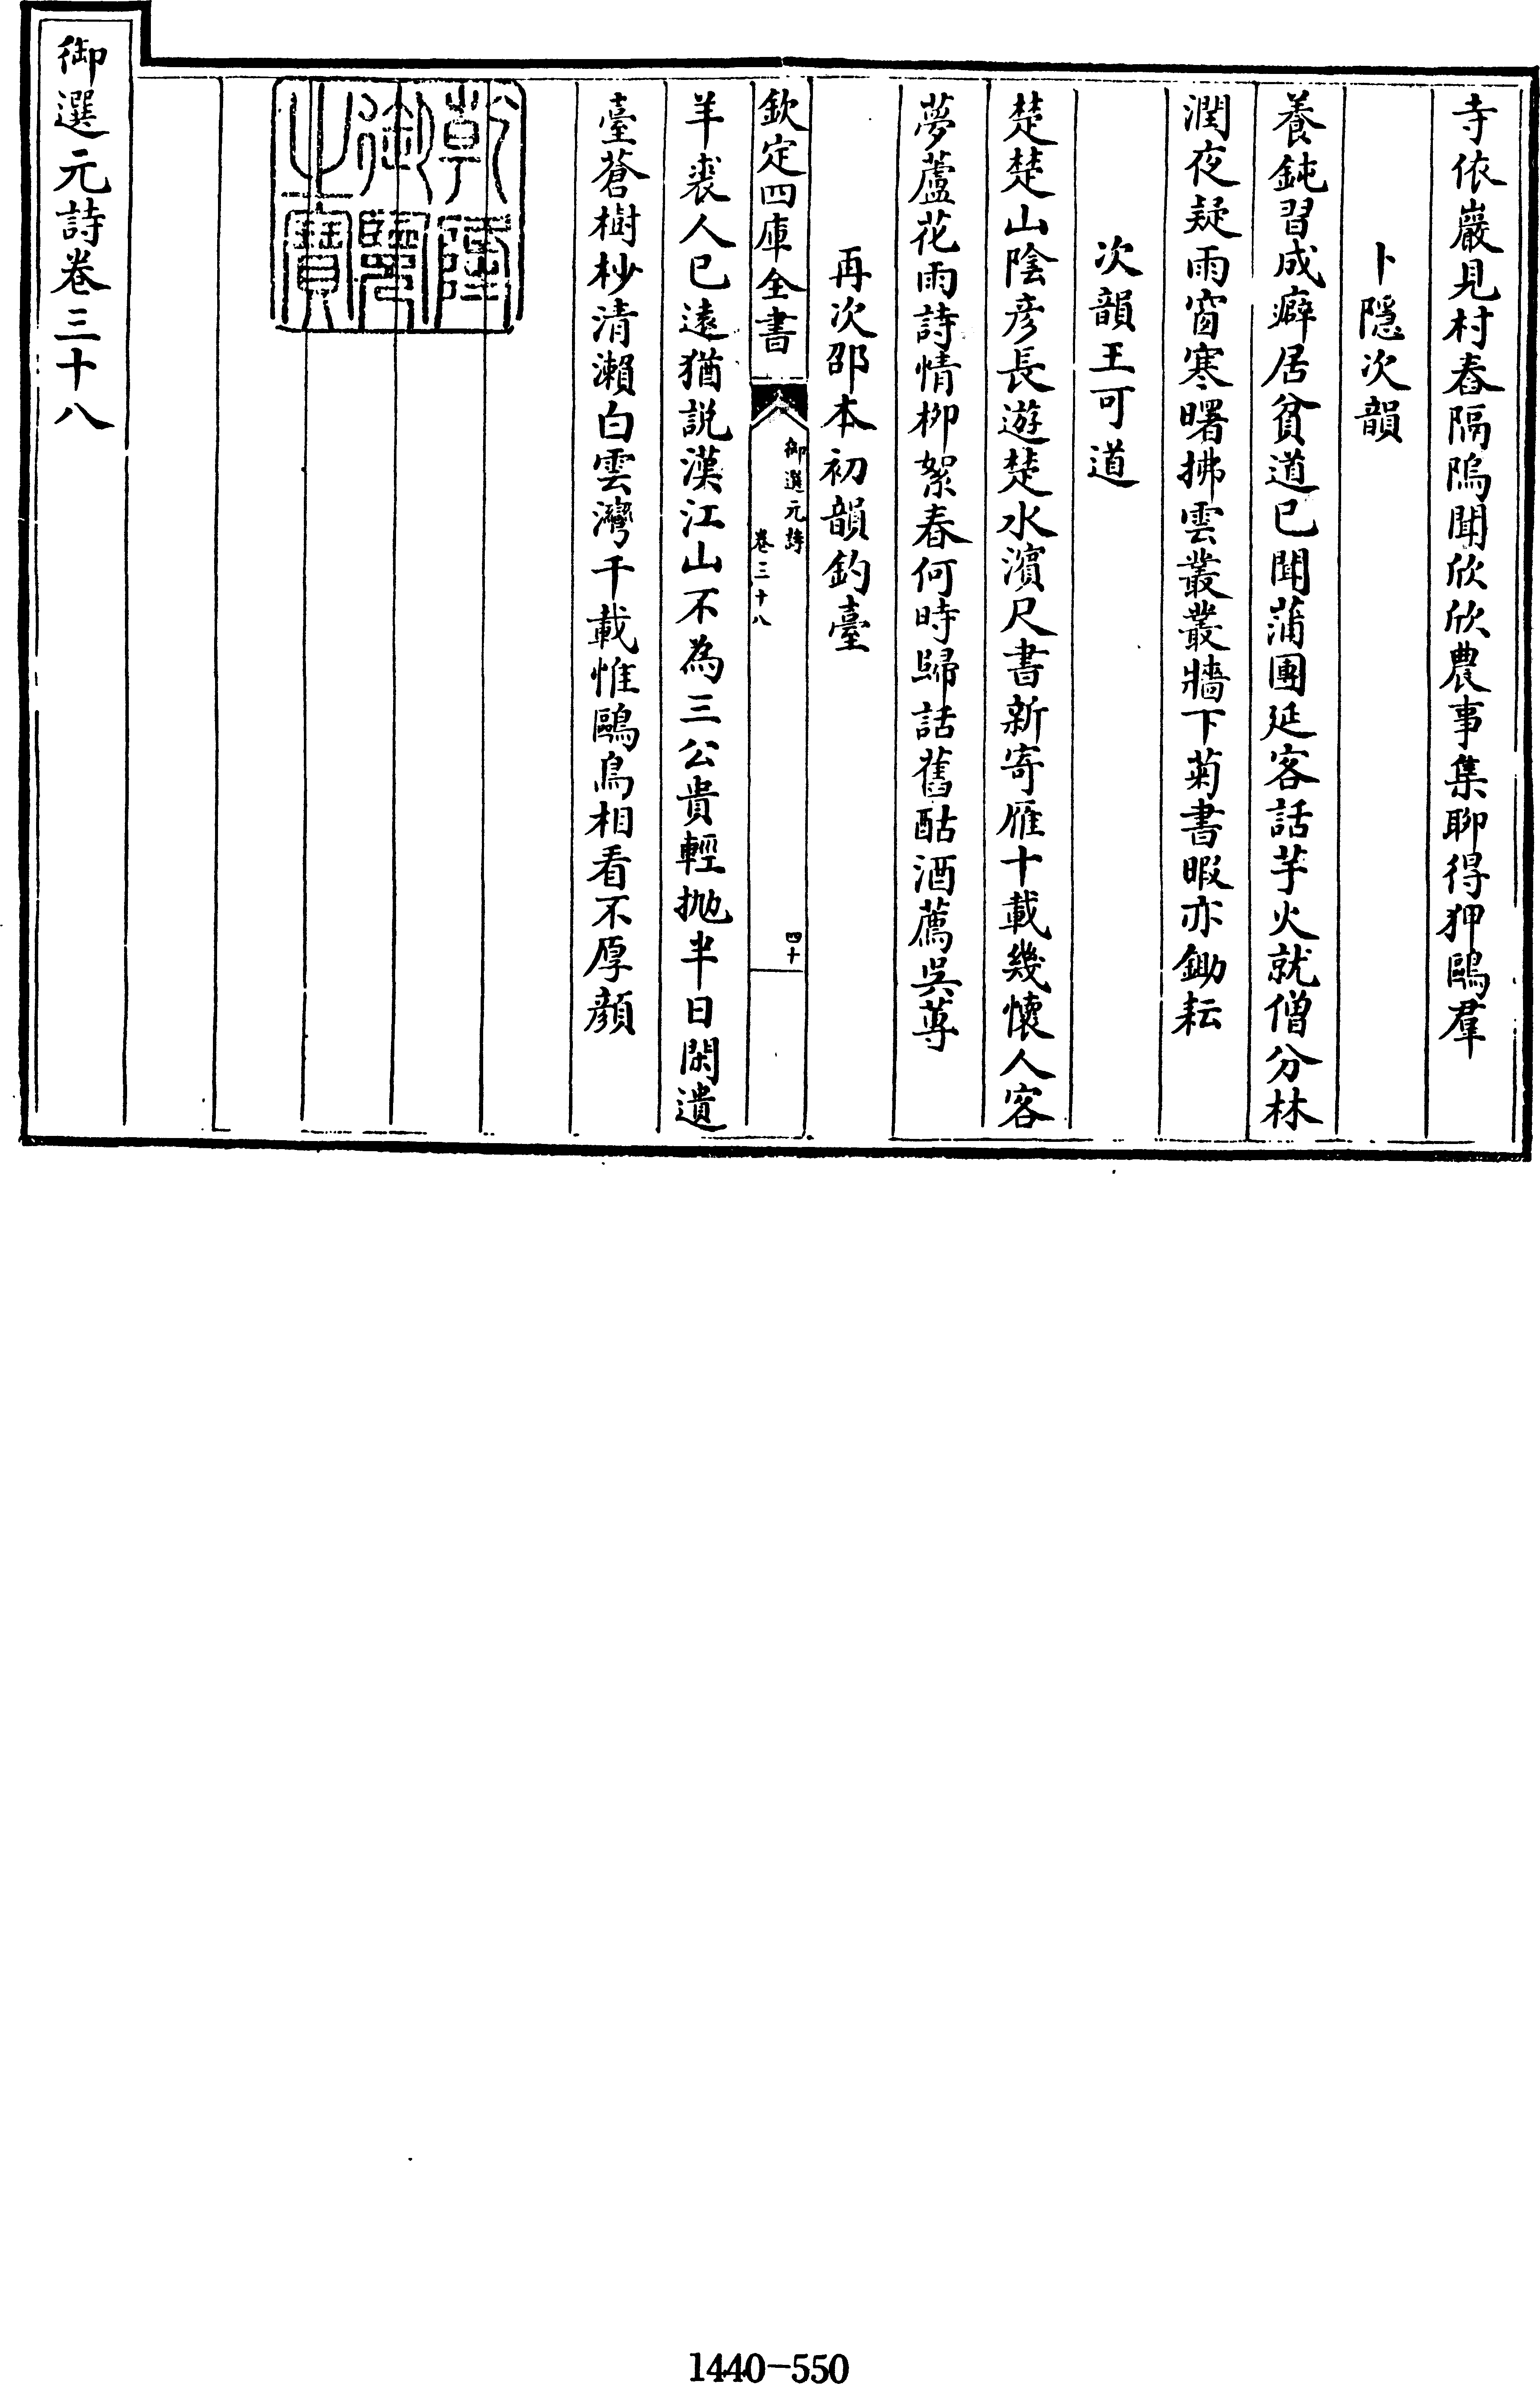 寺依巖見村舂隔隖聞欣欣農事集聊得狎鷗羣
卜隱次韻
養鈍習成癖居貧道已聞蒲團延客話芋火就僧分林
潤夜疑雨窗寒曙拂雲叢叢牆下菊書暇亦鋤耘
次韻王可道
楚楚山陰彥長遊楚水濱尺書新寄雁十載幾懷人客
夢蘆花雨詩情柳絮春何時歸話舊酤酒薦吳蓴
再次邵本初韻釣臺
欽定四庫全書
御選元詩
卷三十八
四十
羊裘人已遠猶説漢江山不為三公貴輕抛半日閑遺
臺蒼樹杪清瀨白雲灣千載惟鷗鳥相看不厚顏
乾隆御覽之寶
御選元詩卷三十八
1440-550